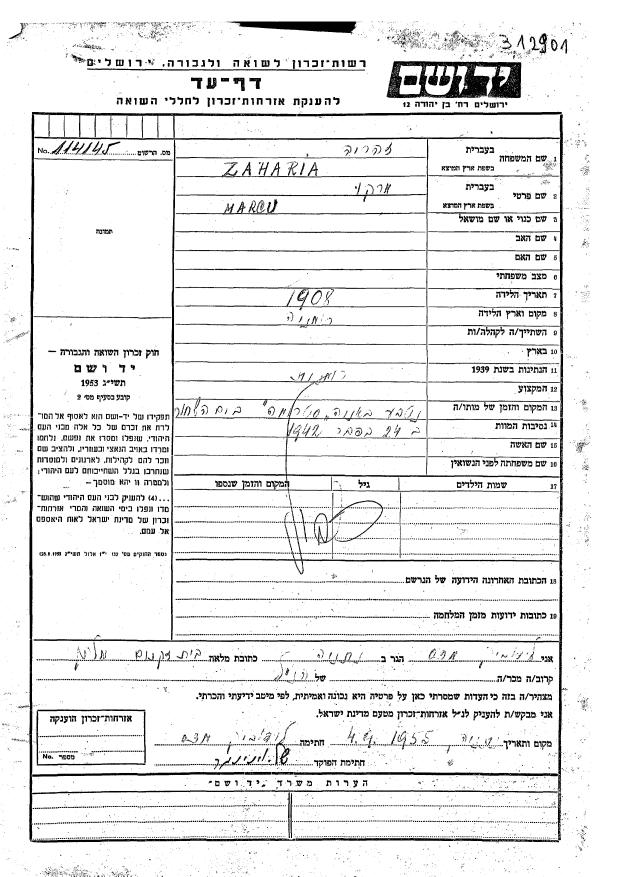 312901
רשות-זכרון לשואה ולגבורה, ירושלים
דף-עד
להענקת אזרחות-זכרון לחללי השואה
יד ושם
ירושלים רח' בן יהודה 12
No. 114145 מס. הרשום
תמונה
1 שם המשפחה בעברית זהריה
בשפת ארץ המוצא ZAHARIA
2 שם פרטי בעברית מרקו
בשפת ארץ המוצא MARCU
3 שם כנוי או שם מושאל
4 שם האב
5 שם האם
6 מצב משפחתי
7 תאריך הלידה 1908
8 מקום וארץ הלידה רומניה
9 השתייך/ה לקהלה/ות
10 בארץ
11 הנתינות בשנת 1939 רומנית
12 המקצוע
13 המקום והזמן של מותו/ה נטבע באניה "סטרומה" בים השחור
14 נסיבות המוות ב 24 בפבר 1942
15 שם האשה
16 שם משפחתה לפני הנשואין
17 שמות הילדים גיל המקום והזמן שנספו
חוק זכרון השואה והגבורה —
יד ושם
תשי"ג 1953
קובע בסעיף מס' 2
תפקידו של יד-ושם הוא לאסוף אל המו־
לדת את זכרם של כל אלה מבני העם
היהודי, שנפלו ומסרו את נפשם, נלחמו
ומרדו באויב הנאצי ובעוזריו, ולהציב שם
וזכר להם לקהילות, לארגונים ולמוסדות
שנחרבו בגלל השתייכותם לעם היהודי;
ולמטרה זו יהא מוסמך—
...(4) להעניק לבני העם היהודי שהוש־
מדו ונפלו בימי השואה והמרי אזרחות־
זכרון של מדינת ישראל לאות היאספם
אל עמם.
18 הכתובת האחרונה הידועה של הנרשם
19 כתובות ידועות מזמן המלחמה
אני הגר ב נתניה כתובת מלאה
קרוב/ה מכר/ה של הנ"ל
מצהיר/ה בזה כי העדות שמסרתי כאן על פרטיה היא נכונה ואמיתית, לפי מיטב ידיעתי והכרתי.
אני מבקש/ת להעניק לנ"ל אזרחות-זכרון מטעם מדינת ישראל.
מקום ותאריך 1955 חתימה
חתימת הפוקד
אזרחות-זכרון הוענקה
No. מספר
הערות משרד "יד ושם"